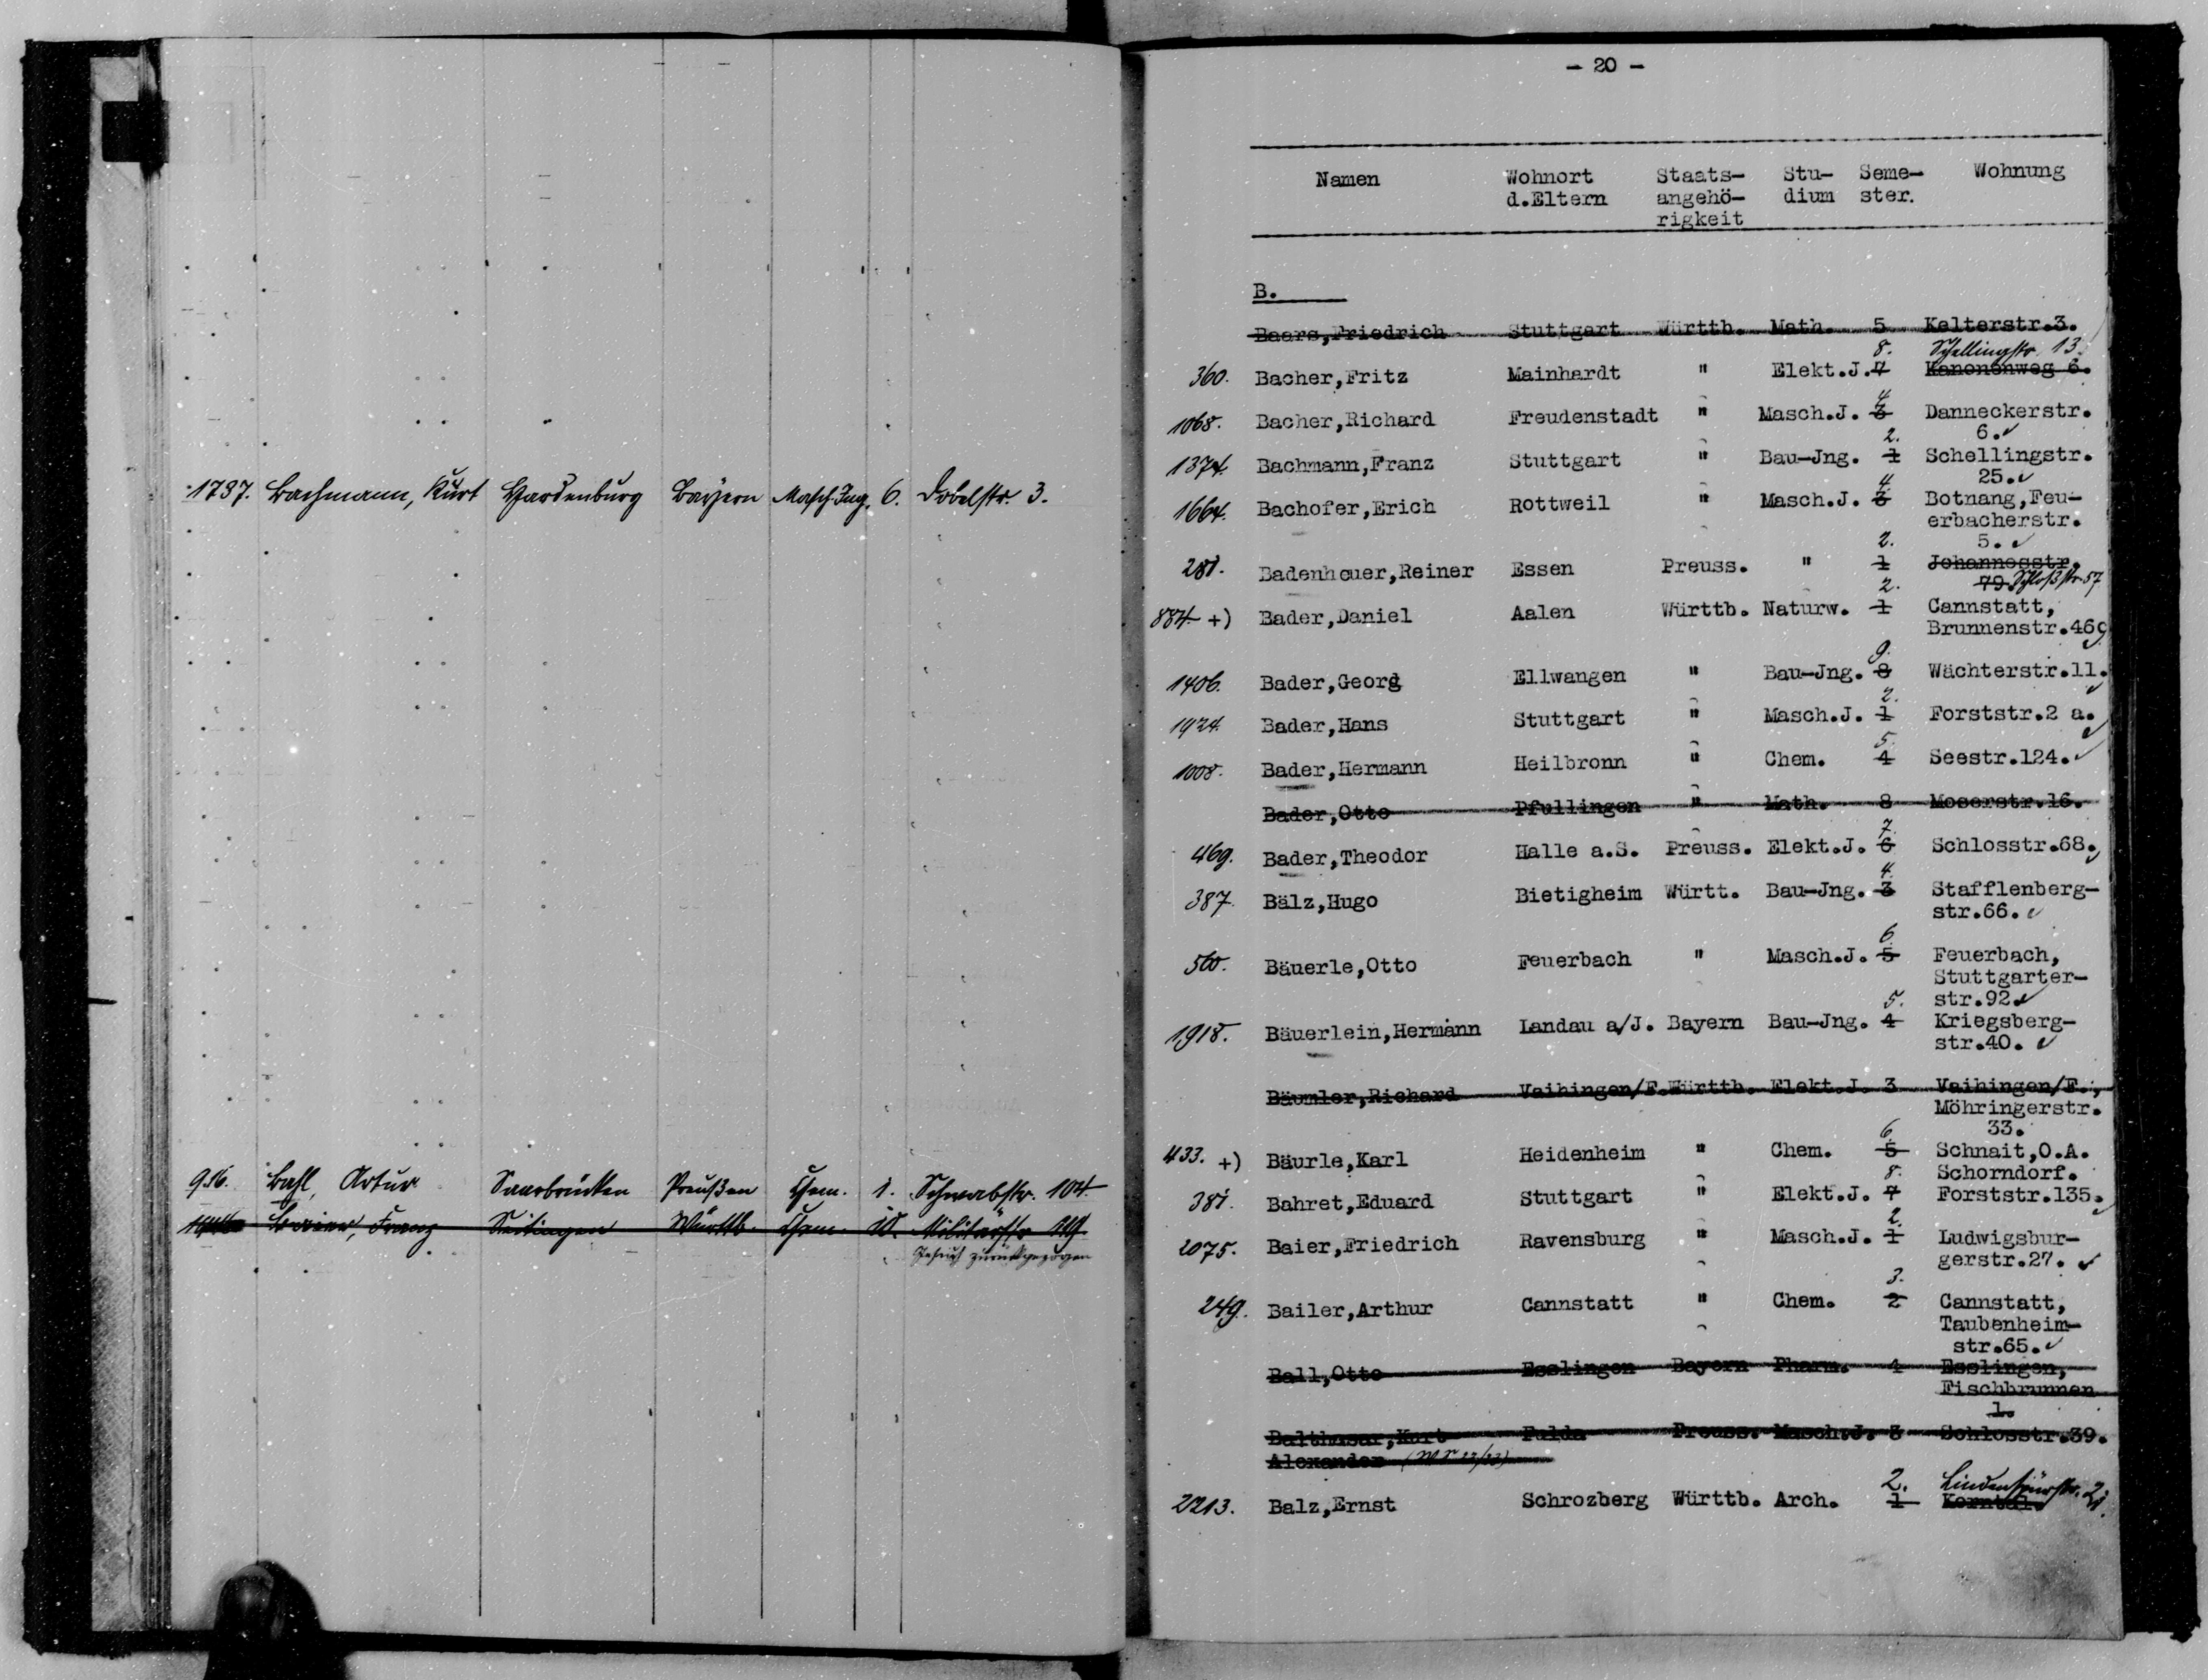 1737. Bachmann, Kurt Hardenburg Bayern Masch. Ing. 6. Dobelstr. 3.
926. Bahl, Artur Saarbrücken Preußen Chem. 1. Schwabstr. 104
Baier, Franz Württb. Chem. Militärstr.
Gesuch zurückgezogen
- 20 -
Namen Wohnort Staats- Stu- Seme- Wohnung
d.Eltern angehö- dium ster.
rigkeit
B.
Baars,Friedrich Stuttgart Württb. Math. 5 Kelterstr.3.
8. Schellingstr. 13.
360. Bacher,Fritz Mainhardt " Elekt.J. 7 Kanonenweg 6.
4
1068. Bacher,Richard Freudenstadt " Masch.J. 3 Danneckerstr.
2. 6.
1374. Bachmann,Franz Stuttgart " Bau-Jng. 1 Schellingstr.
4. 25.
1664. Bachofer,Erich Rottweil " Masch.J. 3 Botnang,Feu-
erbacherstr.
2. 5.
281. Badenheuer,Reiner Essen Preuss. " 1 Johannesstr.
2. 79. Schloßstr. 57
884. +) Bader,Daniel Aalen Württb. Naturw. 1 Cannstatt,
Brunnenstr.46
9.
1406. Bader,Georg Ellwangen " Bau-Jng. 8 Wächterstr.11.
2.
1924. Bader,Hans Stuttgart " Masch.J. 1 Forststr.2 a.
5.
1008. Bader,Hermann Heilbronn " Chem. 4 Seestr.124.
Bader,Otto Pfullingen " Math. 8 Moserstr.16.
7.
469. Bader,Theodor Halle a.S. Preuss. Elekt.J. 6 Schlosstr.68.
4.
387. Bälz,Hugo Bietigheim Württ. Bau-Jng. 3 Stafflenberg-
str.66.
6.
560. Bäuerle,Otto Feuerbach " Masch.J. 5 Feuerbach,
Stuttgarter-
5. str.92.
1918. Bäuerlein,Hermann Landau a/J. Bayern Bau-Jng. 4 Kriegsberg-
str.40.
Bäumler,Richard Vaihingen/F. Württb. Elekt.J. 3 Vaihingen/F.,
Möhringerstr.
6. 33.
433. +) Bäurle,Karl Heidenheim " Chem. 5 Schnait,O.A.
8. Schorndorf.
381. Bahret,Eduard Stuttgart " Elekt.J. 7 Forststr.135.
2.
2075. Baier,Friedrich Ravensburg " Masch.J. 1 Ludwigsbur-
gerstr.27.
3.
249. Bailer,Arthur Cannstatt " Chem. 2 Cannstatt,
Taubenheim-
str.65.
Ball,Otto Esslingen Bayern Pharm. 4 Esslingen,
Fischbrunnen
1.
Balthasar,Kurt Fulda Preuss. Masch.J. 3 Schlosstr.39.
Alexander
2. Lindenspürstr. 21.
2213. Balz,Ernst Schrozberg Württb. Arch. 1 Korntal.